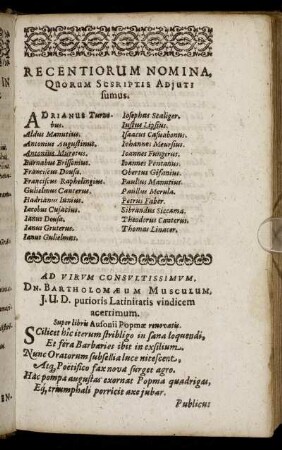 RECENTIORUM NOMINA,
QUORUM SCRIPTIS ADJUTI
sumus.
ADRIANUS Turne-
bus.
Aldus Manutius.
Antonius Augustinus.
Antonius Muretus.
Barnabas Brissonius.
Franciscus Dousa.
Franciscus Raphelingius.
Gulielmus Canterus.
Hadrianus Iunius.
Iacobus Cujacius.
Ianus Dousa.
Ianus Gruterus.
Ianus Gulielmus.
Iosephus Scaliger.
Iustus Lipsius.
Isaacus Casaubonus.
Iohannes Meursius.
Ioannes Fungerus.
Ioannes Pontanus.
Obertus Gifanius.
Paullus Manutius.
Paullus Merula.
Petrus Faber.
Sibrandus Siccama.
Theodorus Canterus.
Thomas Linacer.
AD VIRUM CONSULTISSIMUM,
DN. BARTHOLOMÆUM MUSCULUM,
J.U.D. purioris Latinitatis vindicem
acerrimum.
Super libris Ausonii Popmæ renovatis.
SCilicet hîc iterum stribligo in sana loquendi,
Et fera Barbaries ibit in exsilium.
Nunc Oratorum subsellia luce nitescent,
Atq, Poëtifico fax nova surget agro.
Hac pompa augustas exornat Popma quadrigas,
Eq, triumphali porricit axe jubar.
Publicus